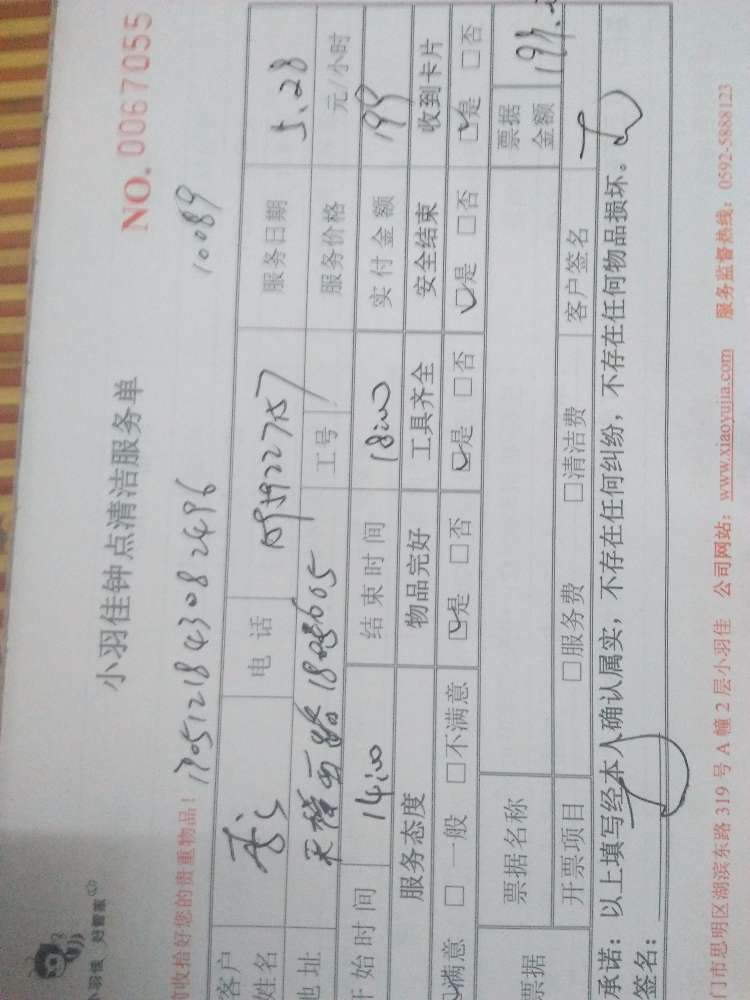 小羽佳 好管家
小羽佳钟点清洁服务单
NO. 0067055
收拾好您的贵重物品！ 170512184308 2496 10089
客户姓名 电话 服务日期 5.28
地址 工号 服务价格 元/小时
开始时间 14:00 结束时间 18:00 实付金额 199
服务态度 物品完好 工具齐全 安全结束 收到卡片
满意 □一般 □不满意 □是 □否 □是 □否 □是 □否 □是 □否
票据 票据名称 票据金额
开票项目 □服务费 □清洁费 客户签名
承诺：以上填写经本人确认属实，不存在任何纠纷，不存在任何物品损坏。
签名：
门市思明区湖滨东路 319 号 A 幢 2 层小羽佳 公司网站：www.xiaoyujia.com 服务监督热线：0592-5888123